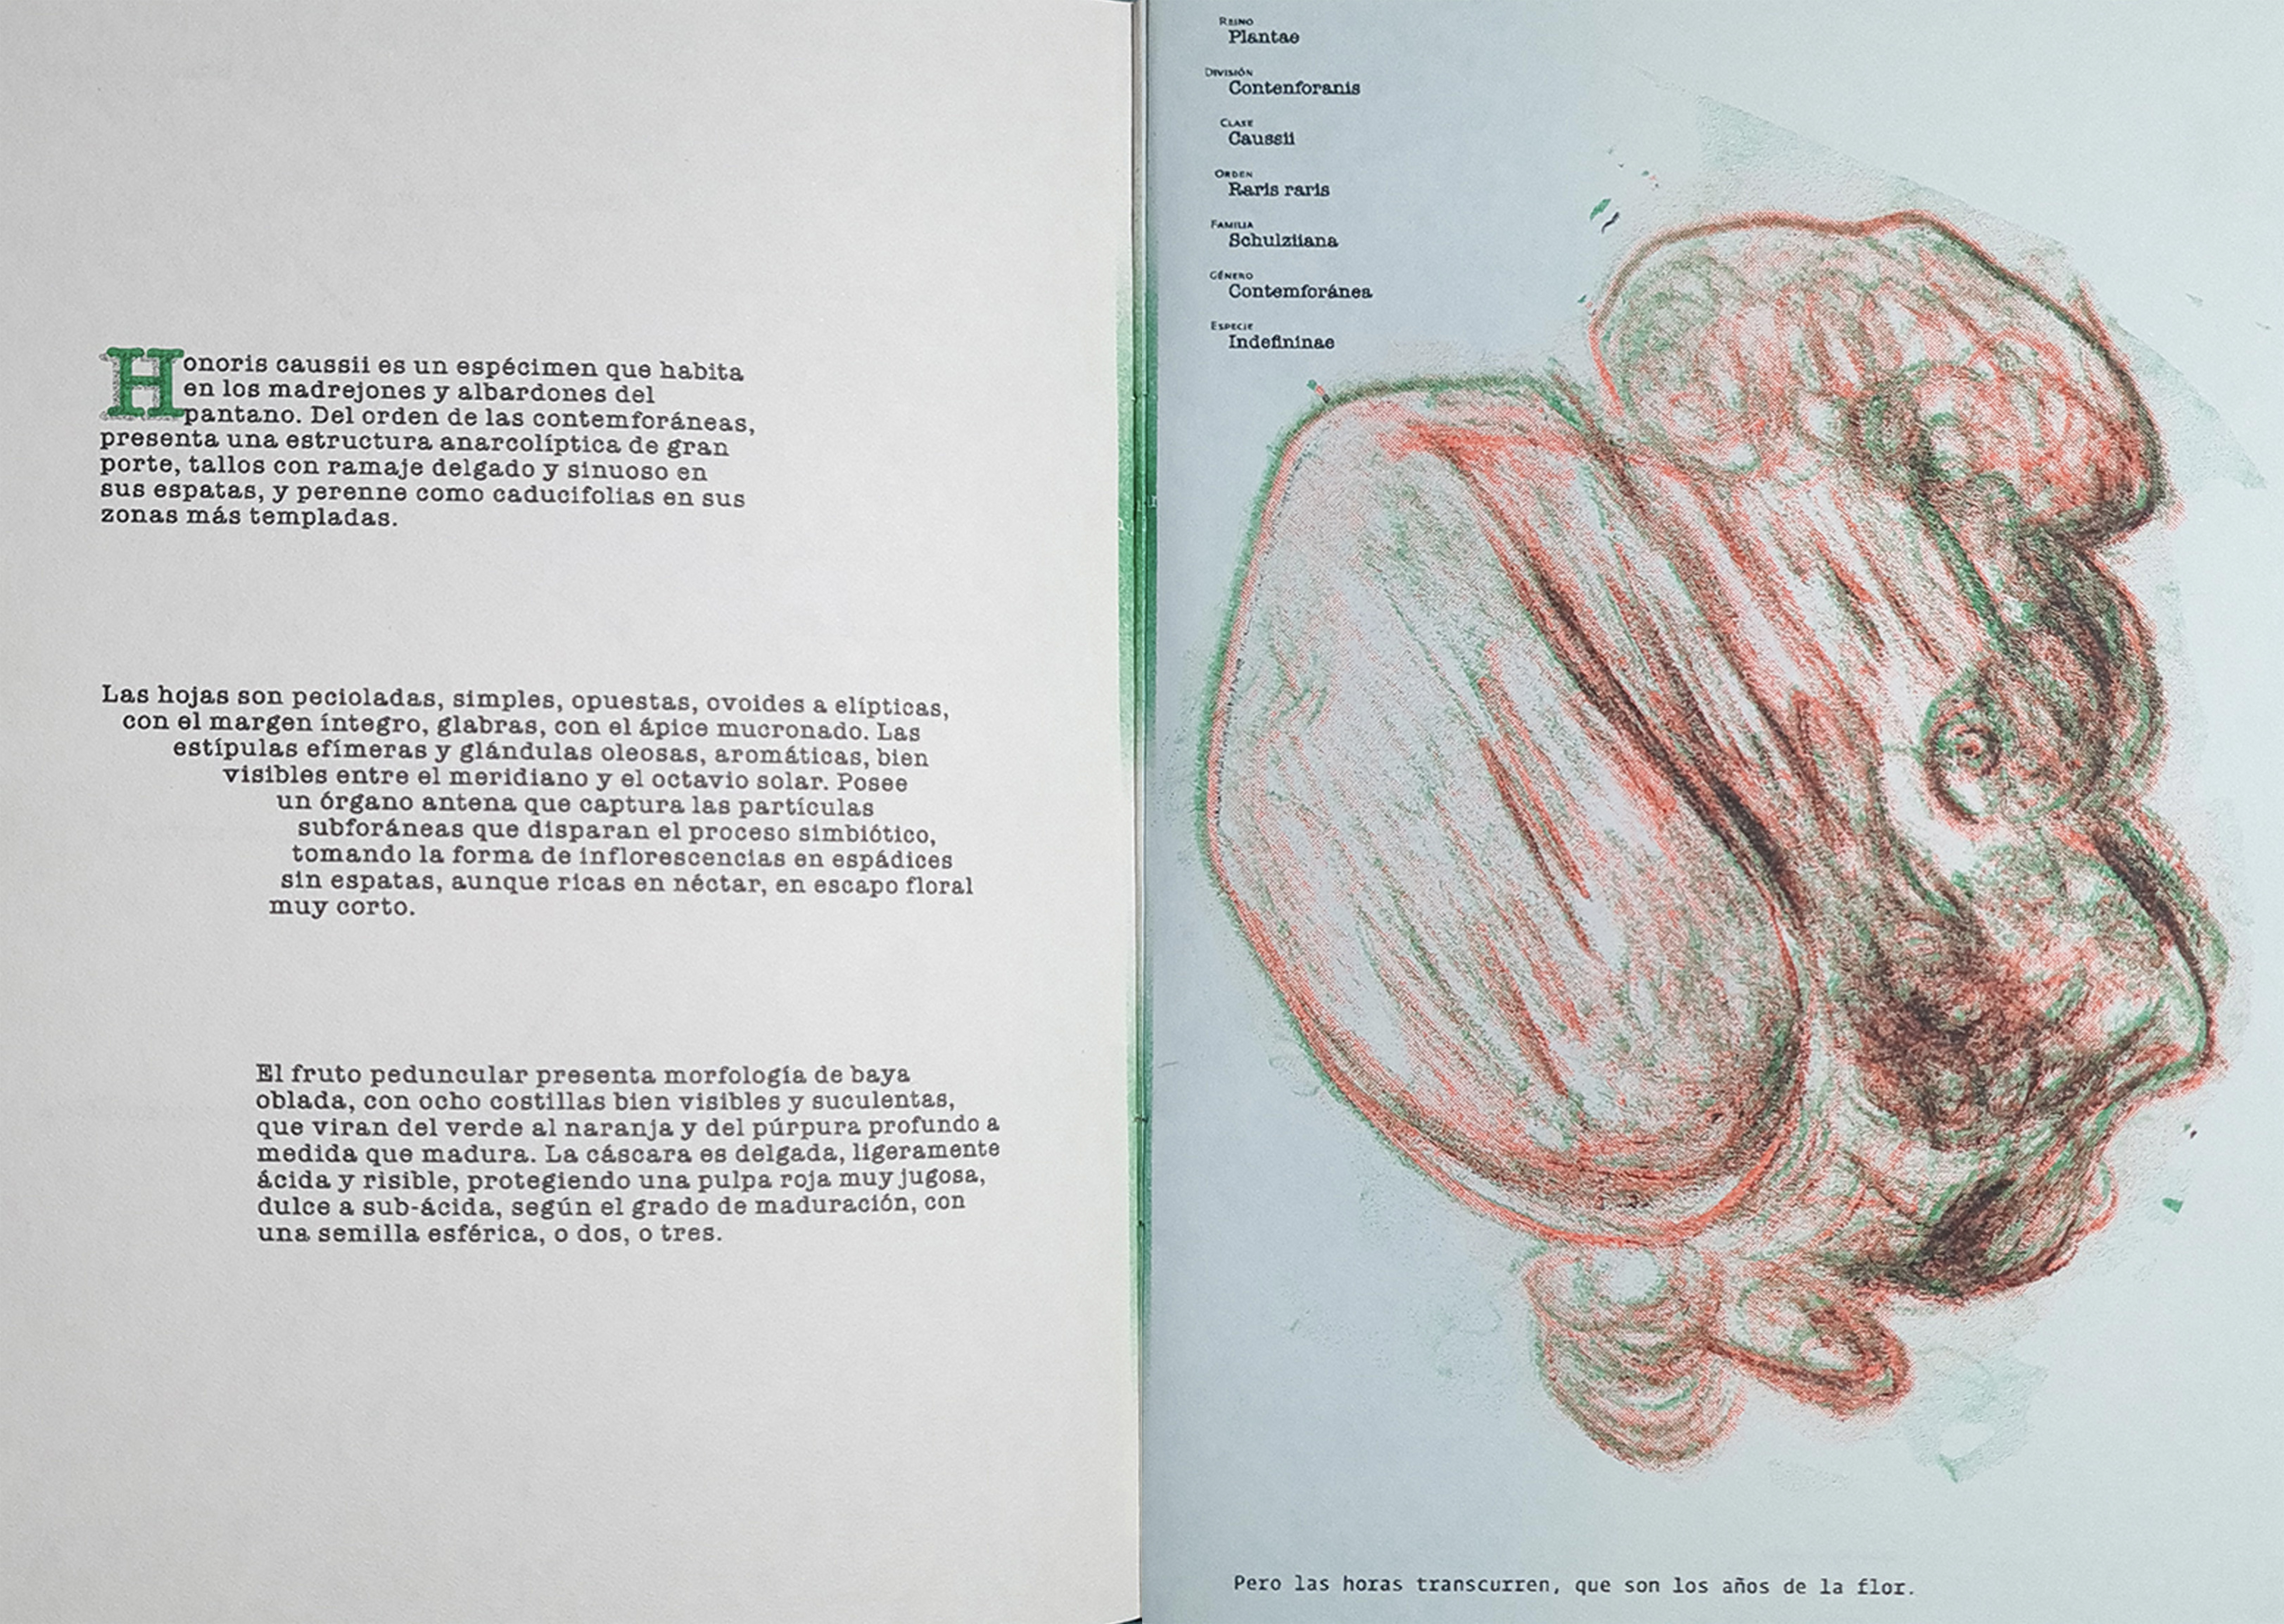 Honoris caussii es un espécimen que habita
en los madrejones y albardones del
pantano. Del orden de las contemforáneas,
presenta una estructura anarcolíptica de gran
porte, tallos con ramaje delgado y sinuoso en
sus espatas, y perenne como caducifolias en sus
zonas más templadas.
Las hojas son pecioladas, simples, opuestas, ovoides a elípticas,
con el margen íntegro, glabras, con el ápice mucronado. Las
estípulas efímeras y glándulas oleosas, aromáticas, bien
visibles entre el meridiano y el octavio solar. Posee
un órgano antena que captura las partículas
subforáneas que disparan el proceso simbiótico,
tomando la forma de inflorescencias en espádices
sin espatas, aunque ricas en néctar, en escapo floral
muy corto.
El fruto peduncular presenta morfología de baya
oblada, con ocho costillas bien visibles y suculentas,
que viran del verde al naranja y del púrpura profundo a
medida que madura. La cáscara es delgada, ligeramente
ácida y risible, protegiendo una pulpa roja muy jugosa,
dulce a sub-ácida, según el grado de maduración, con
una semilla esférica, o dos, o tres.
Reino
Plantae
División
Contenforanis
Clase
Caussii
Orden
Raris raris
Familia
Schulziiana
Género
Contemforánea
Especie
Indefininae
Pero las horas transcurren, que son los años de la flor.